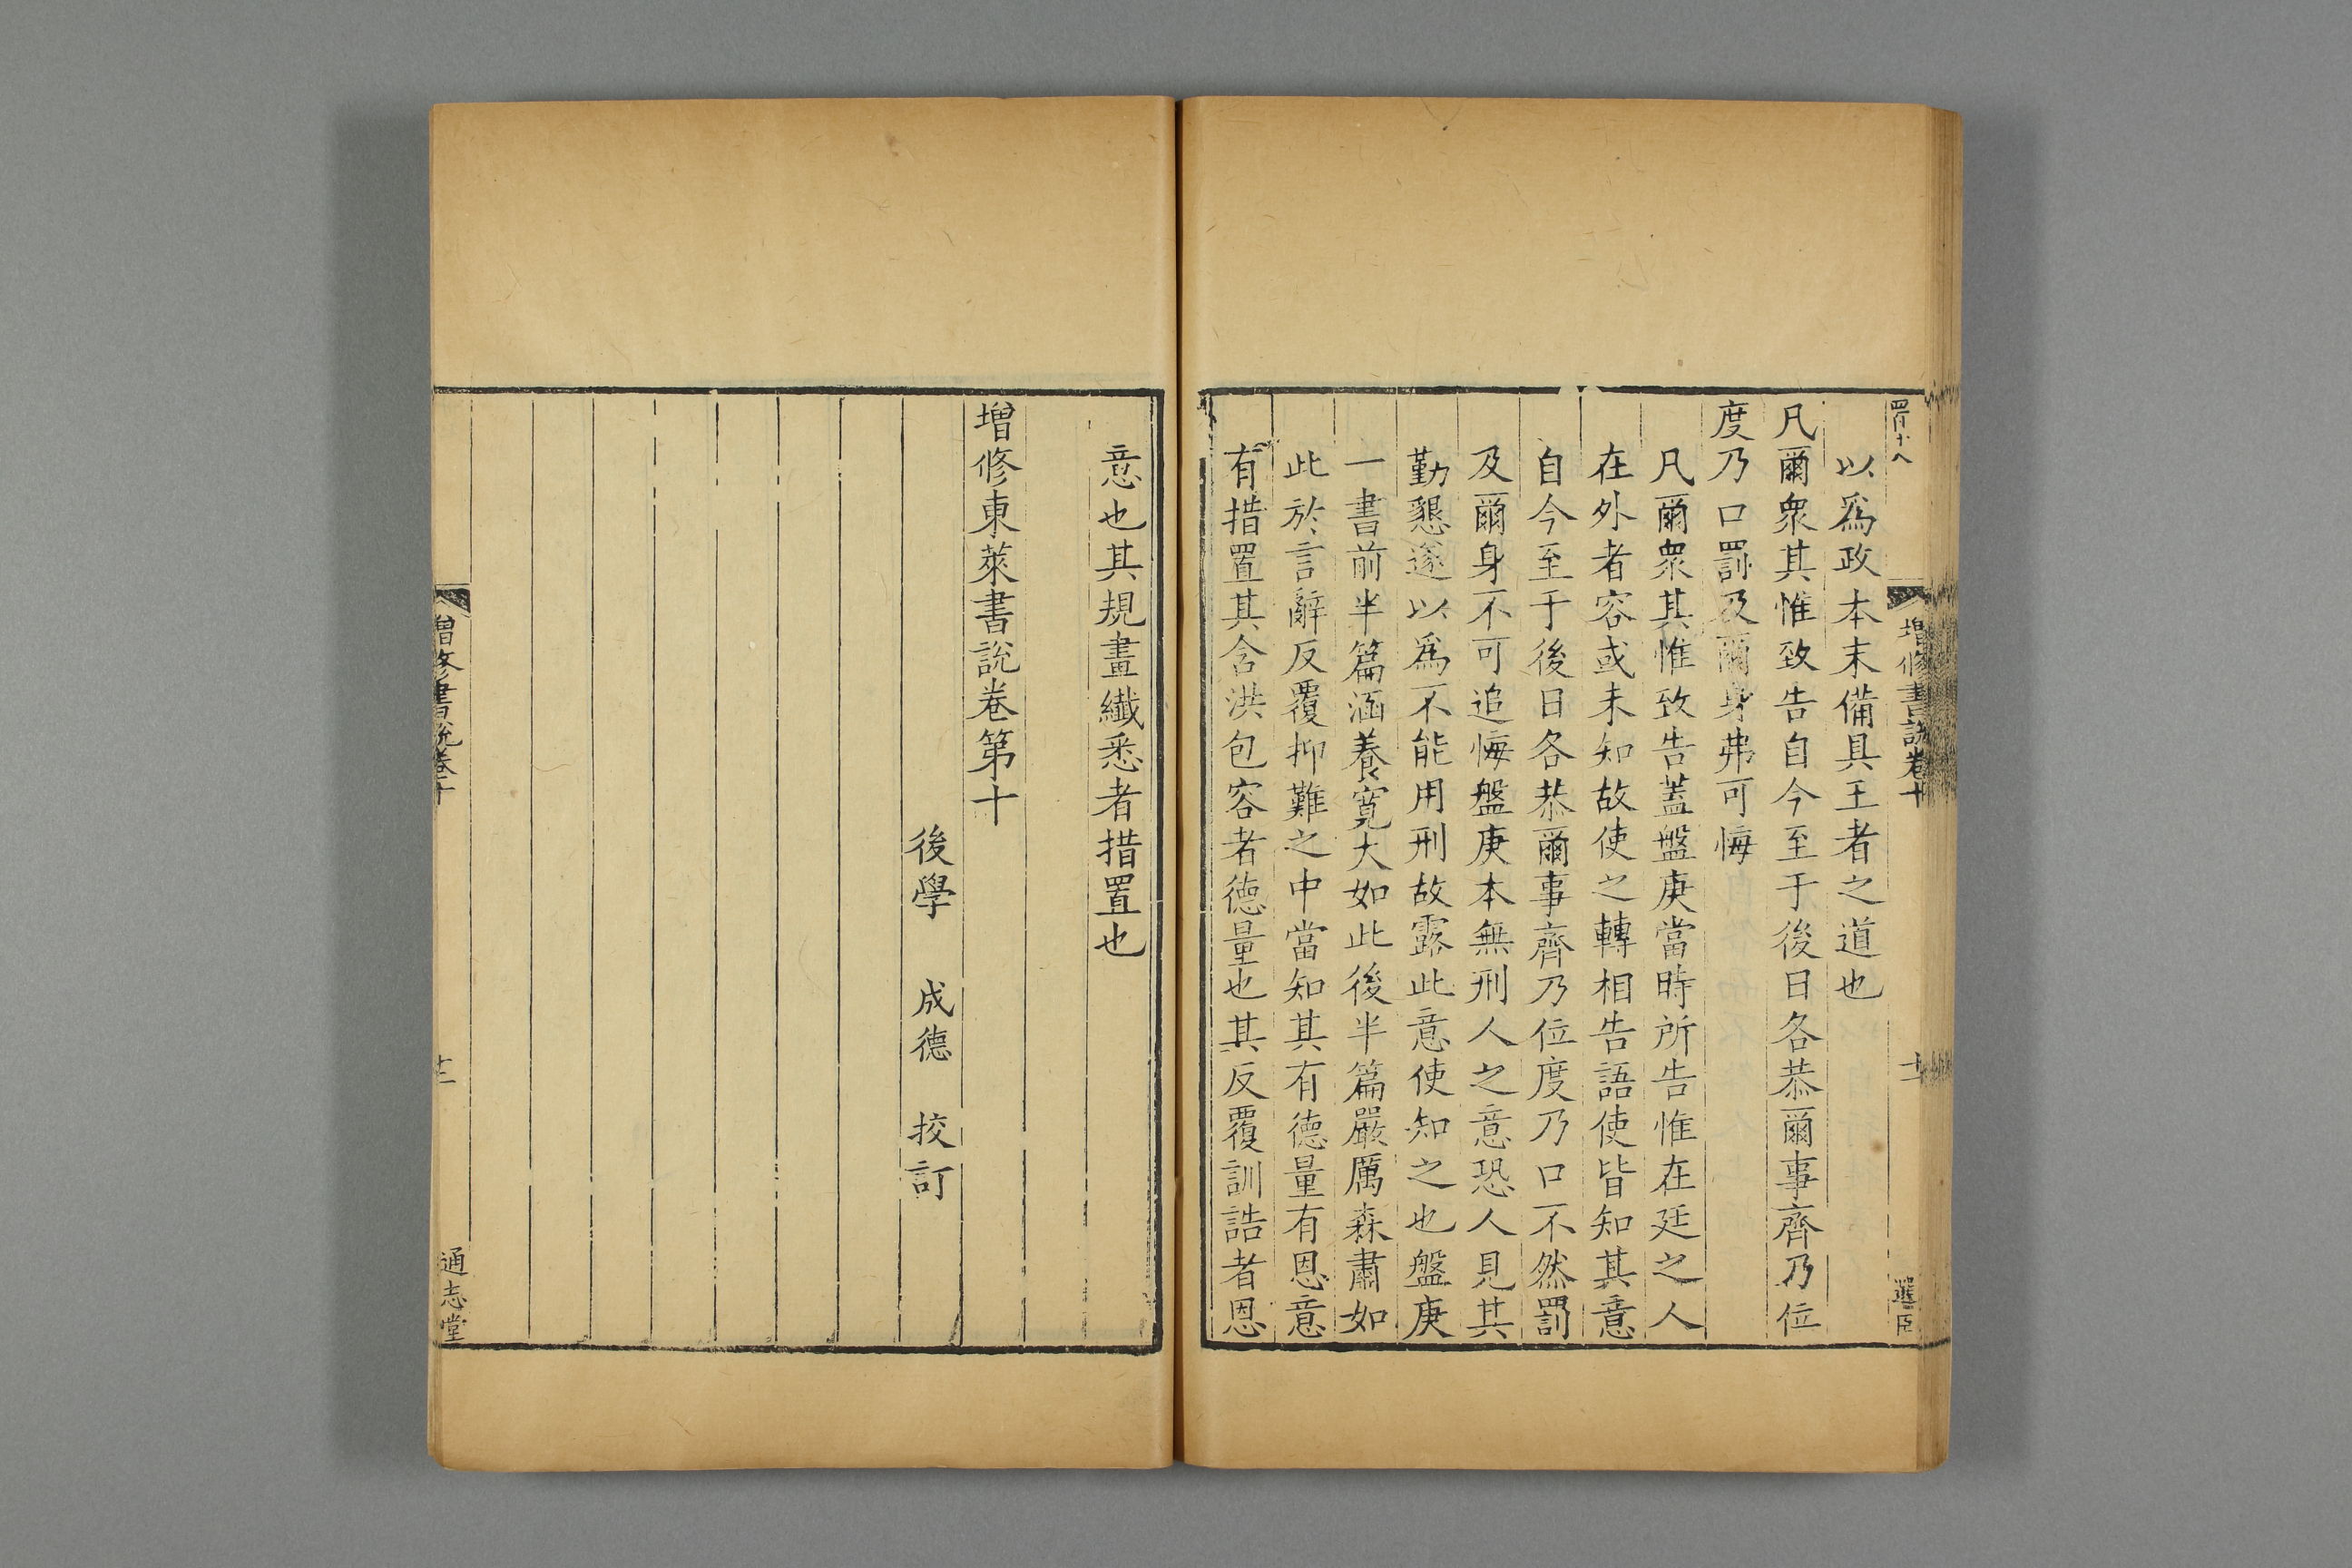 以爲政本末備具王者之道也
凡爾衆其惟致告自今至于後日各恭爾事齊乃位
度乃口罰及爾身弗可悔
凡爾衆其惟致告蓋盤庚當時所告惟在廷之人
在外者容或未知故使之轉相告語使皆知其意
自今至于後日各恭爾事齊乃位度乃口不然罰
及爾身不可追悔盤庚本無刑人之意恐人見其
勤懇遂以爲不能用刑故露此意使知之也盤庚
一書前半篇涵養寬大如此後半篇嚴厲森肅如
此於言辭反覆抑難之中當知其有德量有恩意
有措置其含洪包容者德量也其反覆訓誥者恩
意也其規畫纖悉者措置也
增修東萊書說卷第十
後學 成德 挍訂
增修書說卷十
通志堂
增修書說卷十